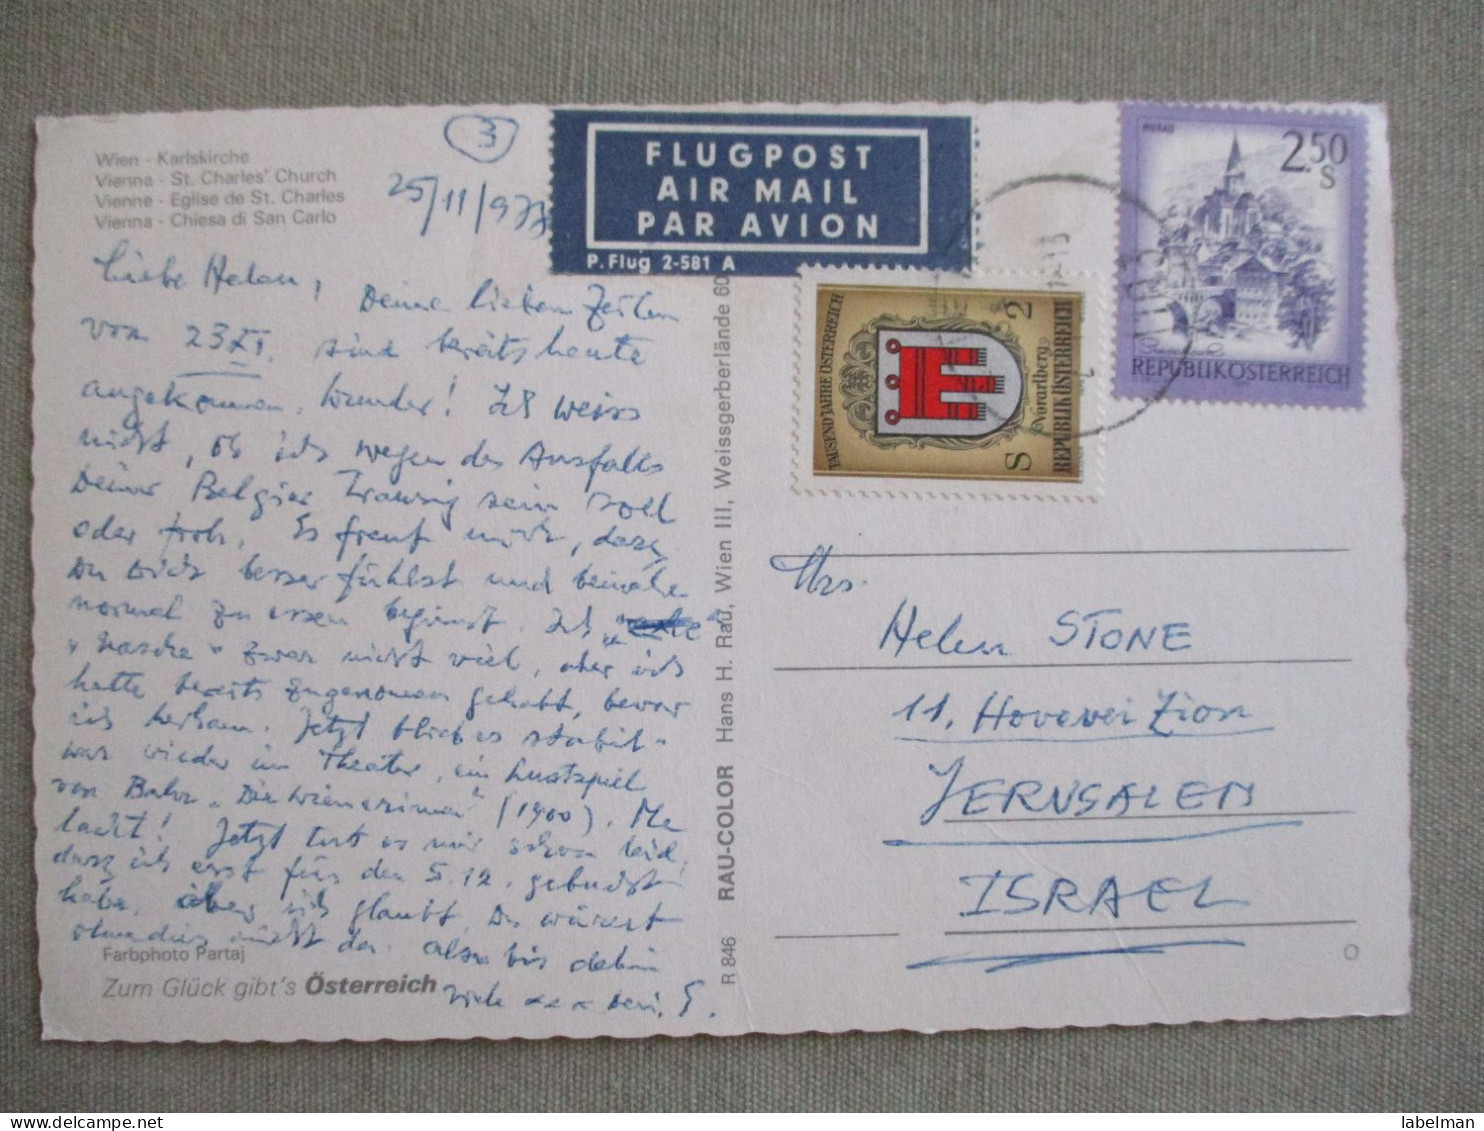 Wien - Karlskirche
Vienna - St. Charles' Church
Vienne - Eglise de St. Charles
Vienna - Chiesa di San Carlo
3
25/11/977
FLUGPOST
AIR MAIL
PAR AVION
P. Flug 2-581 A
2.50
S
MURAU
REPUBLIK ÖSTERREICH
TAUSEND JAHRE ÖSTERREICH
S 2
Vorarlberg
REPUBLIK ÖSTERREICH
Liebe Helen, Deine lieben Zeilen
vom 23 XI. sind bereits heute
angekommen. Wunder! Ich weiss
nicht, ob ich wegen des Ausfalls
Deiner Belgier traurig sein soll
oder froh. Es freut mich, dass
Du Dich besser fühlst und beinahe
normal zu essen beginnst. Ich
"nasche" zwar nicht viel, aber ich
hatte bereits zugenommen gehabt, bevor
ich herkam. Jetzt blieb es stabil.
war wieder im Theater, ein Lustspiel
von Bahr "Die Wienerinnen" (1900). Me
lacht! Jetzt tut es mir schon leid,
dass ich erst für den 5.12. gebucht
habe, aber ich glaubt, Du wärest
ohnedies nicht da. also bis dahin
viele x x x Deri. G.
Farbphoto Partaj
Zum Glück gibt's Österreich
R 846 RAU-COLOR Hans H. Rau, Wien III, Weissgerberlände 60
Mrs.
Helen STONE
11, Hovevei Zion
JERUSALEM
ISRAEL
O